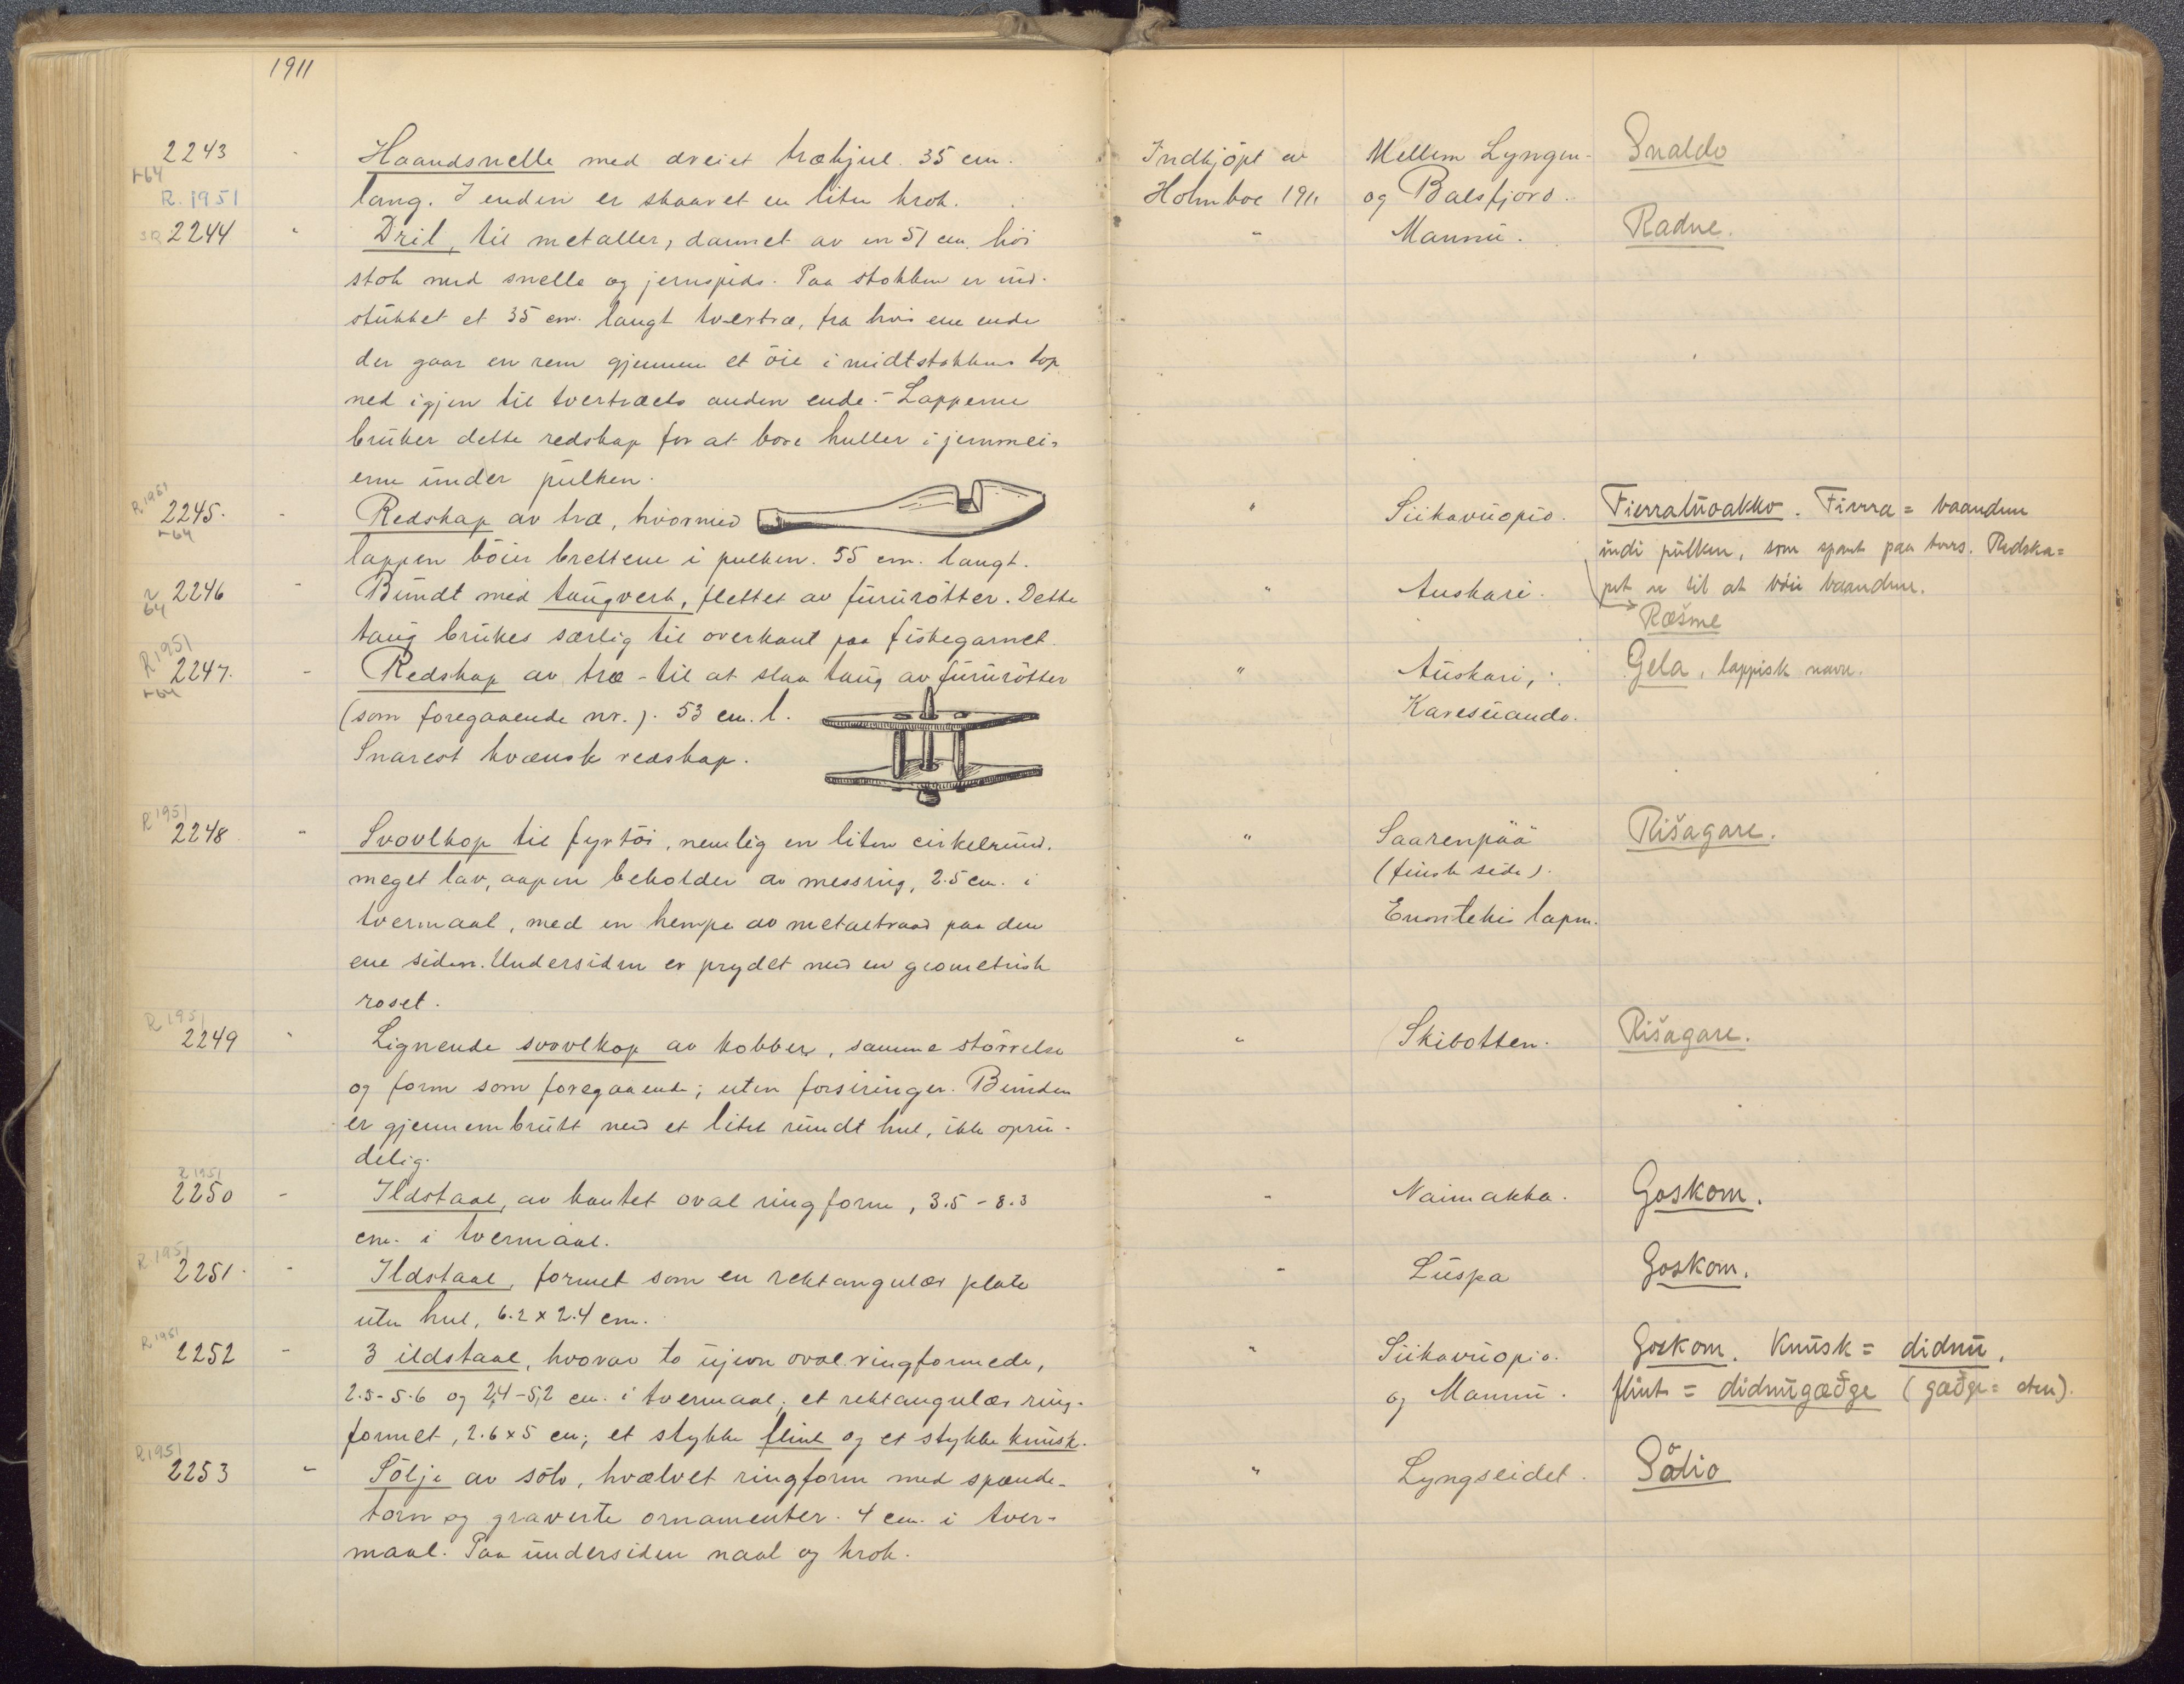 1911
2243 - Haandsnelle med dreiet træhjul. 35 cm. Indkjöpt av Mellem Lyngen- Snaldo
+64
R. 1951 lang. I enden er skaaret en liten krok. Holmboe 1911 og Balsfjord.
2244 " Dril, til metaller, dannet av en 51 cm. höi " Mannu. Radne.
stok med snelle og jernspids. Paa stokken er ind-
stukket et 35 cm. langt tvertræ, fra hvis ene ende
der gaar en rem gjennem et öie i midtstokkens top
ned igjen til tvertræets anden ende. - Lapperne
bruker dette redskap for at bore huller i jernmei-
erne under pulken.
R 1951
2245. - Redskap av træ, hvormed " Siikavuopio. Fierratuoakko. Fierra = baandene
+64
lappen böier brettene i pulken. 55 cm. langt. indi pulken, som spant paa tvers. Redska=
2246 Bundt med taugverk, flettet av fururötter. Dette " Auskari. pet er til at böie baandene.
64
Ræšme
taug brukes særlig til overkant paa fiskegarnet.
R 1951
2247. - Redskap av træ - til at slaa taug av fururötter " Auskari, Gela, lappisk navn.
+64
(som foregaaende nr.). 53 cm. l. Karesuando.
Snarest kvænsk redskap.
R 1951
2248 " Svovlkop til fyrtöi, nemlig en liten cirkelrund, " Saarenpää Rišagare.
meget lav, aapen beholder av messing, 2.5 cm. i (finsk side).
tvermaal, med en hempe av metaltraad paa den Enontekis lapm.
ene siden. Undersiden er prydet med en geometrisk
roset.
R 1951
2249 " Lignende svovlkop av kobber, samme störrelse " Skibotten. Rišagare.
og form som foregaaende; uten forsiringer. Bunden
er gjennembrutt med et litet rundt hul, ikke oprin-
delig.
R 1951
2250 - Ildstaal, av kantet oval ringform, 3.5 - 8.3 - Naimakka. Goskom.
cm. i tvermaal.
R 1951
2251. - Ildstaal, formet som en rektangulær plate - Luspa Goskom.
uten hul, 6.2 x 2.4 cm.
R 1951
2252 - 3 ildstaal, hvorav to ujevn oval ringformede, " Siikavuopio. Goskom. Knusk = didnu,
2.5 - 5.6 og 2,4 - 5,2 cm. i tvermaal; et rektangulær ring- og Mannu. flint = didnugæđge (gæđge = sten).
formet, 2.6 x 5 cm; et stykke flint og et stykke knusk.
R 1951
2253 " Sölje av sölv, hvælvet ringform med spænde- " Lyngseidet. Sölio
torn og graverte ornamenter. 4 cm. i tver-
maal. Paa undersiden naal og krok.